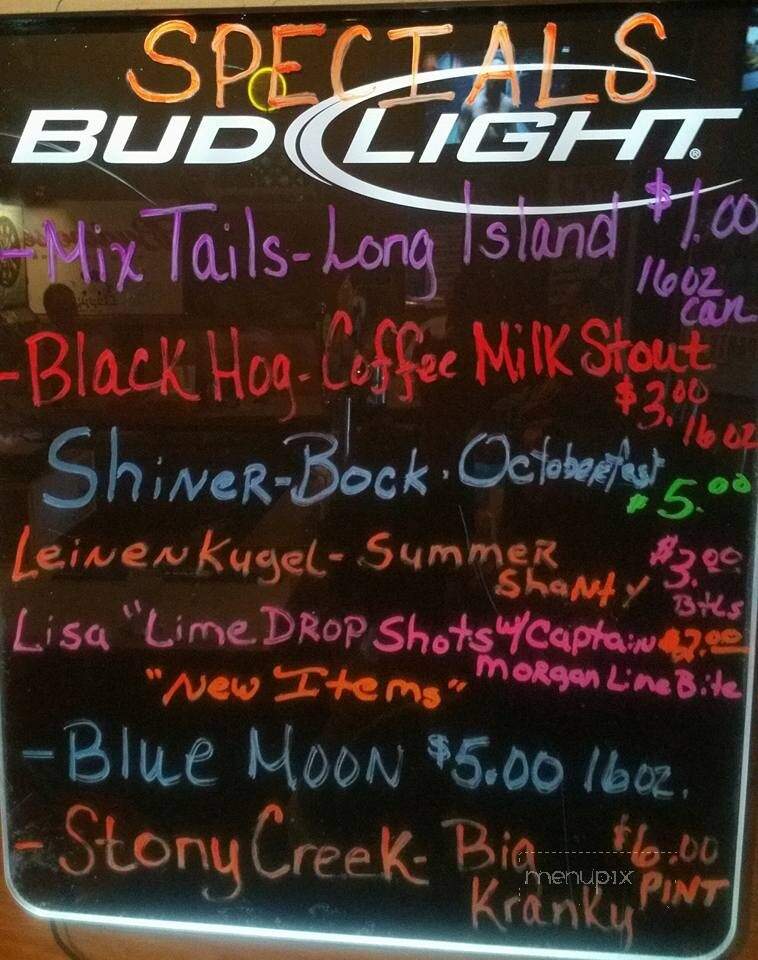 SPECIALS
BUD LIGHT
- Mix Tails - Long Island $1.00
16oz
can
- Black Hog - Coffee Milk Stout
$3.00
16oz
Shiner - Bock . Octoberfest
$5.00
Leinenkugel - Summer $3.00
Shanty
Btls
Lisa "Lime DROP Shots w/ Captain $2.00
"New Items" Morgan Lime Bite
- Blue Moon $5.00 16oz.
- Stony Creek - Big $6.00
menupix
Kranky PINT